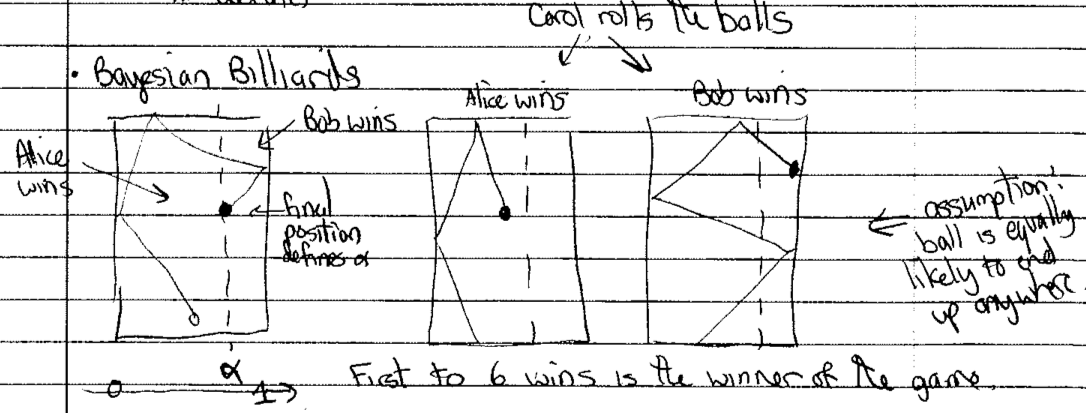 Carol rolls the balls
• Bayesian Billiards
Alice wins
Bob wins
Bob wins
Alice
wins
final
position
defines α
assumption:
ball is equally
likely to end
up anywhere.
α
0
1
First to 6 wins is the winner of the game.